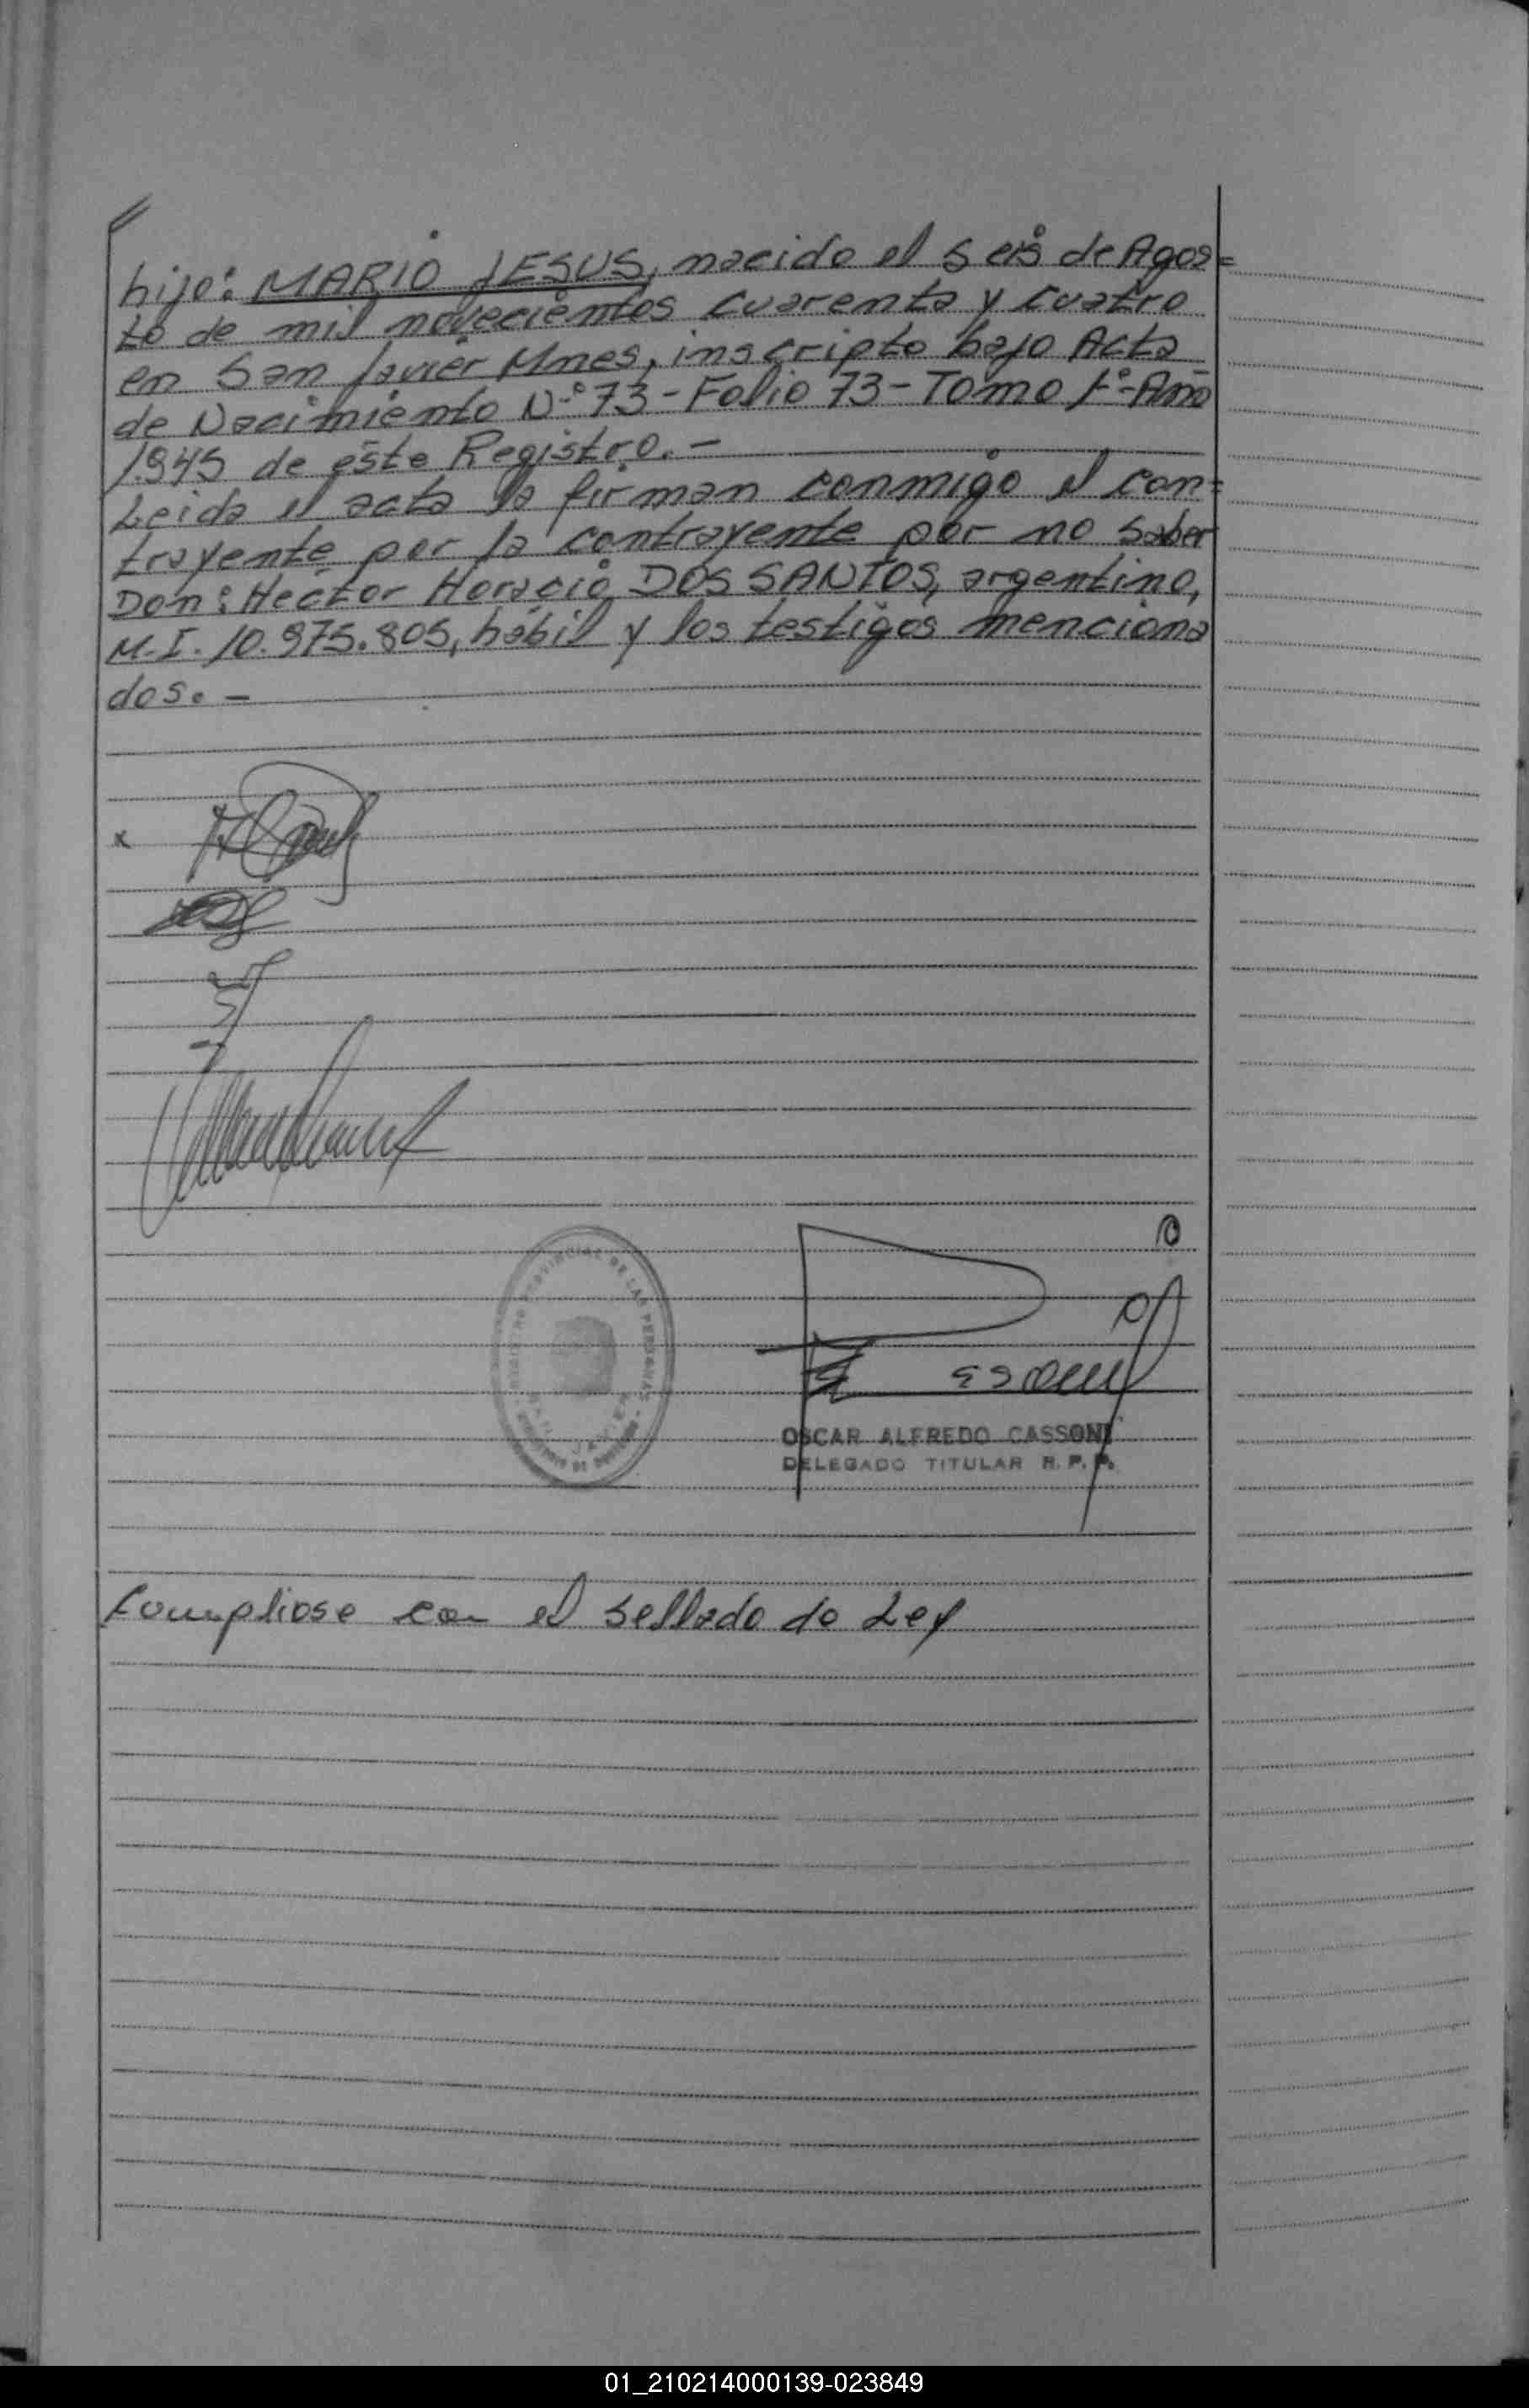 hijo: MARIO JESUS, nacido el seis de Agos=
to de mil novecientos cuarenta y cuatro
en San Javier Mnes, inscripto bajo Acta
de Nacimiento N-º 73-Folio 73-Tomo 1º-Año
1.945 de éste Registro.-
Leida el acta la firman conmigo el con=
trayente por la contrayente por no saber
Don: Hector Horacio DOS SANTOS, argentino,
M.I. 10.975.805, hábil y los testigos menciona
dos.-
x
PROVINCIAL DE LAS PERSONAS
OSCAR ALFREDO CASSONI
DELEGADO TITULAR R. P. P.
Cumpliose con el sellado de Ley
01_210214000139-023849